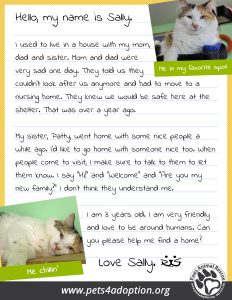 Hello, my name is Sally.
I used to live in a house with my mom,
dad and sister. Mom and dad were
very sad one day. They told us they
couldn't look after us anymore and had to move to a
nursing home. They knew we would be safe here at the
shelter. That was over a year ago.
Me in my favorite spot
My sister, Patty, went home with some nice people a
while ago. I'd like to go home with someone nice too. When
people come to visit, I make sure to talk to them to let
them know. I say "Hi" and "Welcome" and "Are you my
new family?" I don't think they understand me.
I am 8 years old. I am very friendly
and love to be around humans. Can
you please help me find a home?
Me chillin'
Love Sally,
www.pets4adoption.org